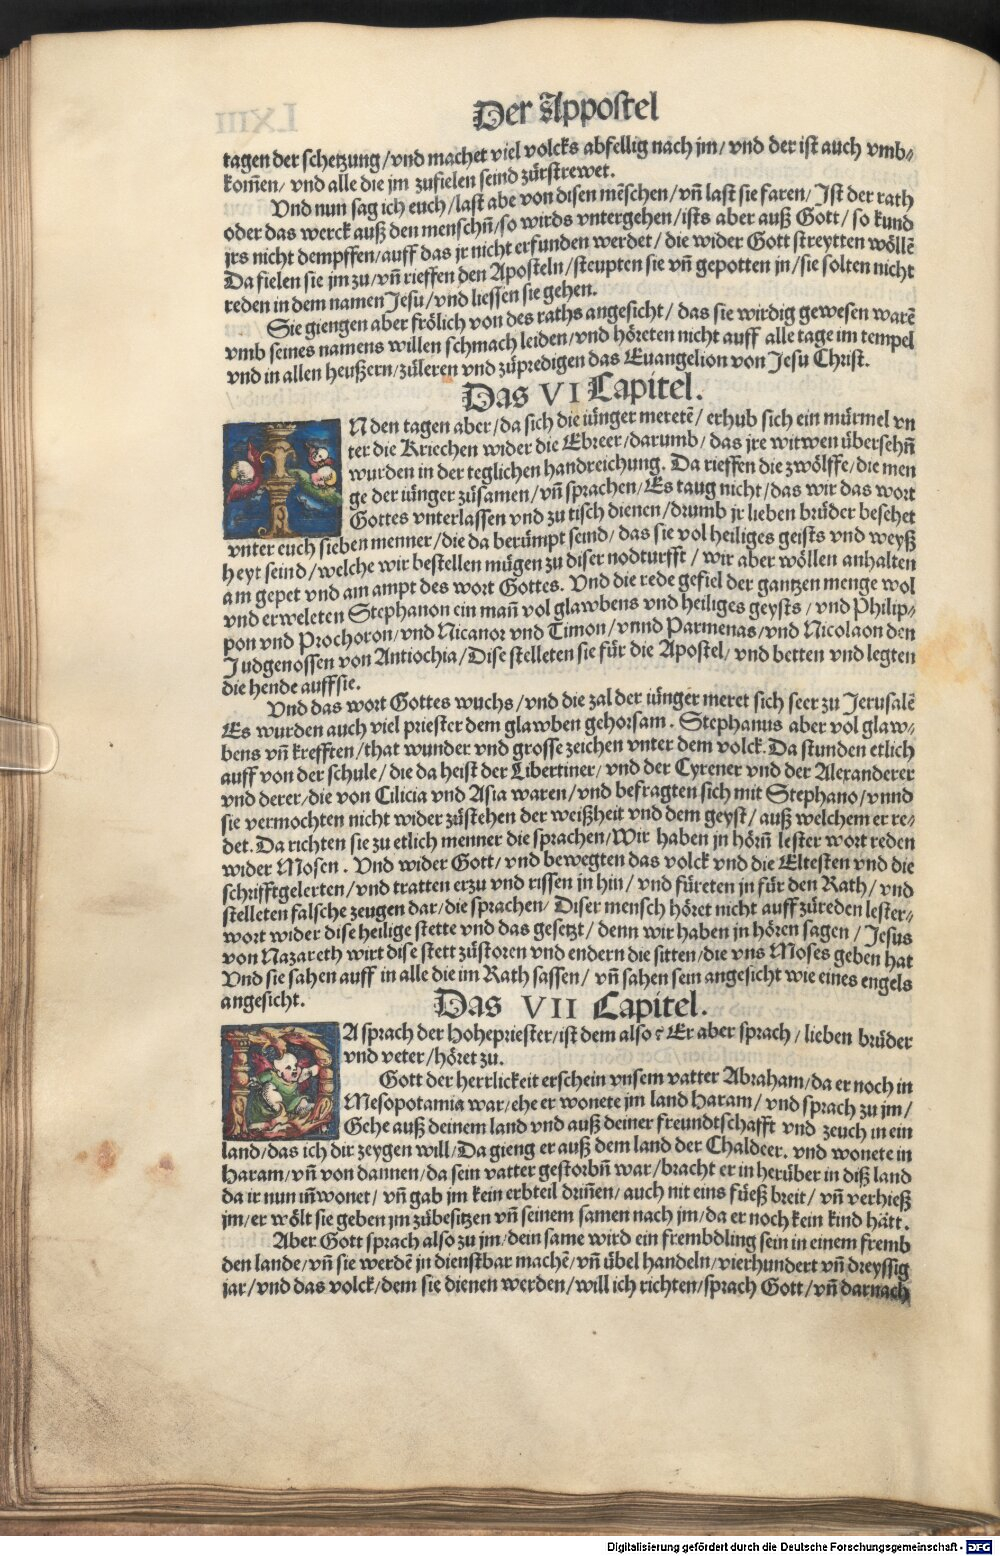 Der Appostel
tagen der schetzung/vnd machet viel volcks abfellig nach jm/ vnd der ist auch vmb⸗
kom̄en/ vnd alle die jm zufielen seind zürstrewet.
Vnd nun sag ich euch/last abe von disen mēschen/ vn̄ last sie faren/ Jst der rath
oder das werck auß den menschn̄/so wirds vntergehen/ists aber auß Gott/ so kund
jrs nicht dempffen/auff das jr nicht erfunden werdet/ die wider Gott streytten wöllē
Da fielen sie jm zu/vn̄ rieffen den Aposteln/steupten sie vn̄ gepotten jn/sie solten nicht
reden in dem namen Jesu/vnd liessen sie gehen.
Sie giengen aber frölich von des raths angesicht/ das sie wirdig gewesen warē
vmb seines namens willen schmach leiden/vnd höreten nicht auff alle tage im tempel
vnd in allen heußern/züleren vnd züpredigen das Euangelion von Jesu Christ.
Das VI Capitel.
IN den tagen aber/da sich die iünger meretē/ erhub sich ein mürmel vn
ter die Kriechen wider die Ebreer/darumb/ das jre witwen übersehn̄
wurden in der teglichen handreichung. Da rieffen die zwölffe/die men
ge der iünger züsamen/vn̄ sprachen/Es taug nicht/das wir das wort
Gottes vnterlassen vnd zu tisch dienen/drumb jr lieben brüder besehet
vnter euch sieben menner/die da berümpt seind/das sie vol heiliges geists vnd weyß
heyt seind/welche wir bestellen mügen zu diser nodturfft/ wir aber wöllen anhalten
am gepet vnd am ampt des wort Gottes. Vnd die rede gefiel der gantzen menge wol
vnd erweleten Stephanon ein man̄ vol glawbens vnd heiliges geysts/vnd Philip⸗
pon vnd Prochoron/vnd Nicanor vnd Timon/vnnd Parmenas/vnd Nicolaon den
Judgenossen von Antiochia/Dise stelleten sie für die Apostel/vnd betten vnd legten
die hende auff sie.
Vnd das wort Gottes wuchs/vnd die zal der iünger meret sich seer zu Jerusalē
Es wurden auch viel priester dem glawben gehorsam. Stephanus aber vol glaw⸗
bens vn̄ krefften/that wunder vnd grosse zeichen vnter dem volck. Da stunden etlich
auff von der schule/die da heist der Libertiner/vnd der Cyrener vnd der Alexanderer
vnd derer/die von Cilicia vnd Asia waren/vnd befragten sich mit Stephano/vnnd
sie vermochten nicht wider züstehen der weißheit vnd dem geyst/auß welchem er re⸗
det. Da richten sie zu etlich menner die sprachen/Wir haben jn hörn̄ lester wort reden
wider Mosen. Vnd wider Gott/vnd bewegten das volck vnd die Eltesten vnd die
schrifftgelerten/vnd tratten erzu vnd rissen jn hin/ vnd füreten jn für den Rath/ vnd
stelleten falsche zeugen dar/die sprachen/ Diser mensch höret nicht auff züreden lester⸗
wort wider dise heilige stette vnd das gesetzt/ denn wir haben jn hören sagen/ Jesus
von Nazareth wirt dise stett züstoren vnd endern die sitten/die vns Moses geben hat
Vnd sie sahen auff in alle die im Rath sassen/ vn̄ sahen sein angesicht wie eines engels
angesicht.
Das VII Capitel.
DA sprach der Hohepriester/ist dem also? Er aber sprach/ lieben brüder
vnd veter/höret zu.
Gott der herrlickeit erschein vnsem vatter Abraham/da er noch in
Mesopotamia war/ehe er wonete jm land Haram/ vnd sprach zu jm/
Gehe auß deinem land vnd auß deiner freundtschafft vnd zeuch in ein
land/das ich dir zeygen will/Da gieng er auß dem land der Chaldeer. vnd wonete in
Haram/vn̄ von dannen/da sein vatter gestorbn̄ war/bracht er in herüber in diß land
da ir nun in̄wonet/ vn̄ gab jm kein erbteil drin̄en/auch nit eins füeß breit/ vn̄ verhieß
jm/er wölt sie geben jm zübesitzen vn̄ seinem samen nach jm/da er noch kein kind hätt.
Aber Gott sprach also zu jm/dein same wird ein frembdling sein in einem fremb
den lande/vn̄ sie werdē jn dienstbar machē/vn̄ übel handeln/vierhundert vn̄ dreyssig
jar/vnd das volck/dem sie dienen werden/will ich richten/sprach Gott/vn̄ darnach
Digitalisierung gefördert durch die Deutsche Forschungsgemeinschaft - DFG